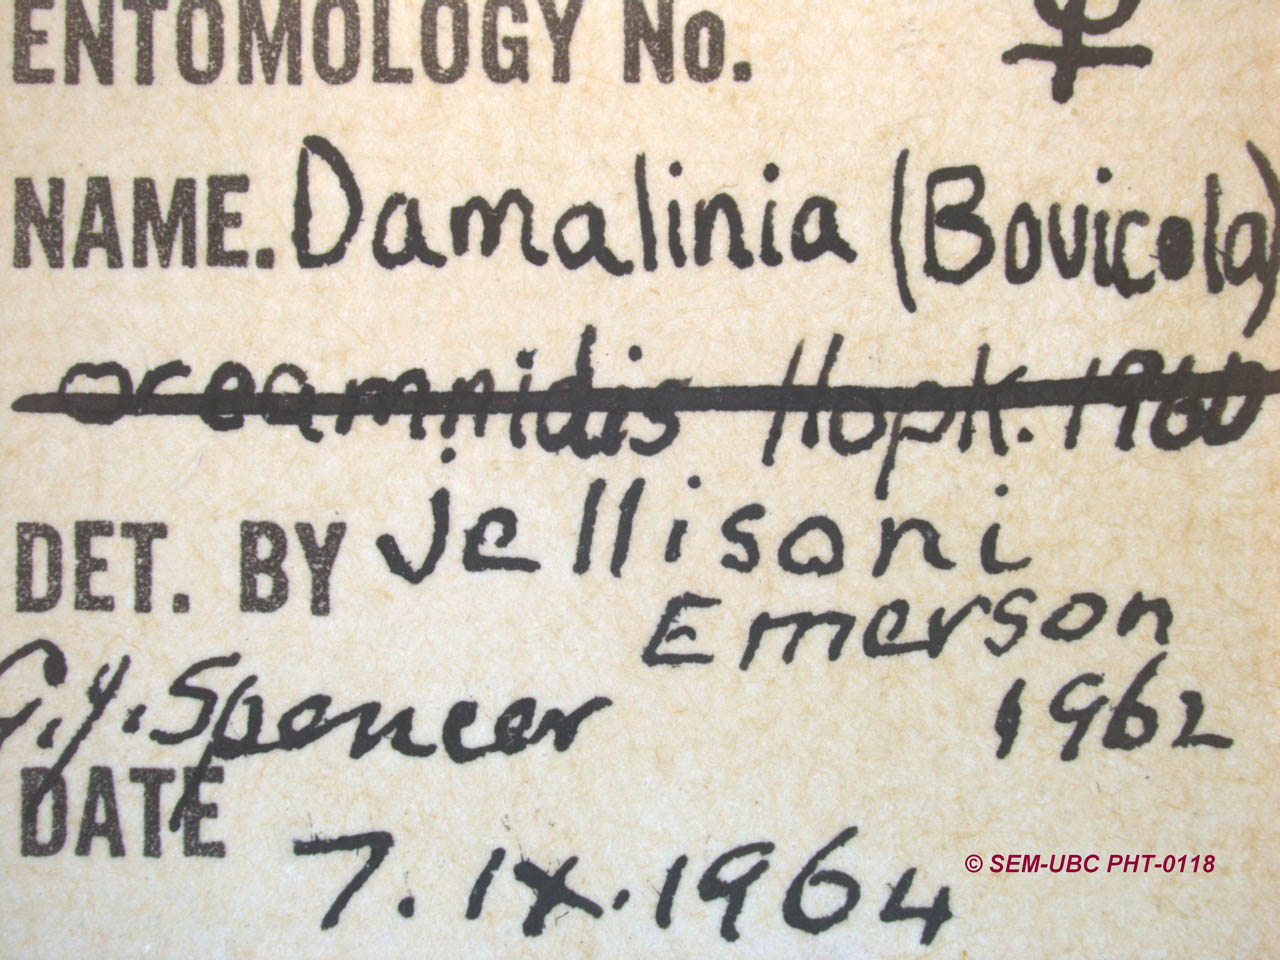 ENTOMOLOGY No. ♀
NAME. Damalinia (Bovicola)
oreamnidis Hopk. 1960
jellisoni
DET. BY
Emerson
G.J. Spencer 1962
DATE
7.IX.1964
© SEM-UBC PHT-0118